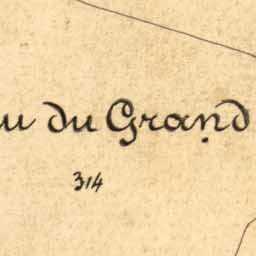 u du Grand
314